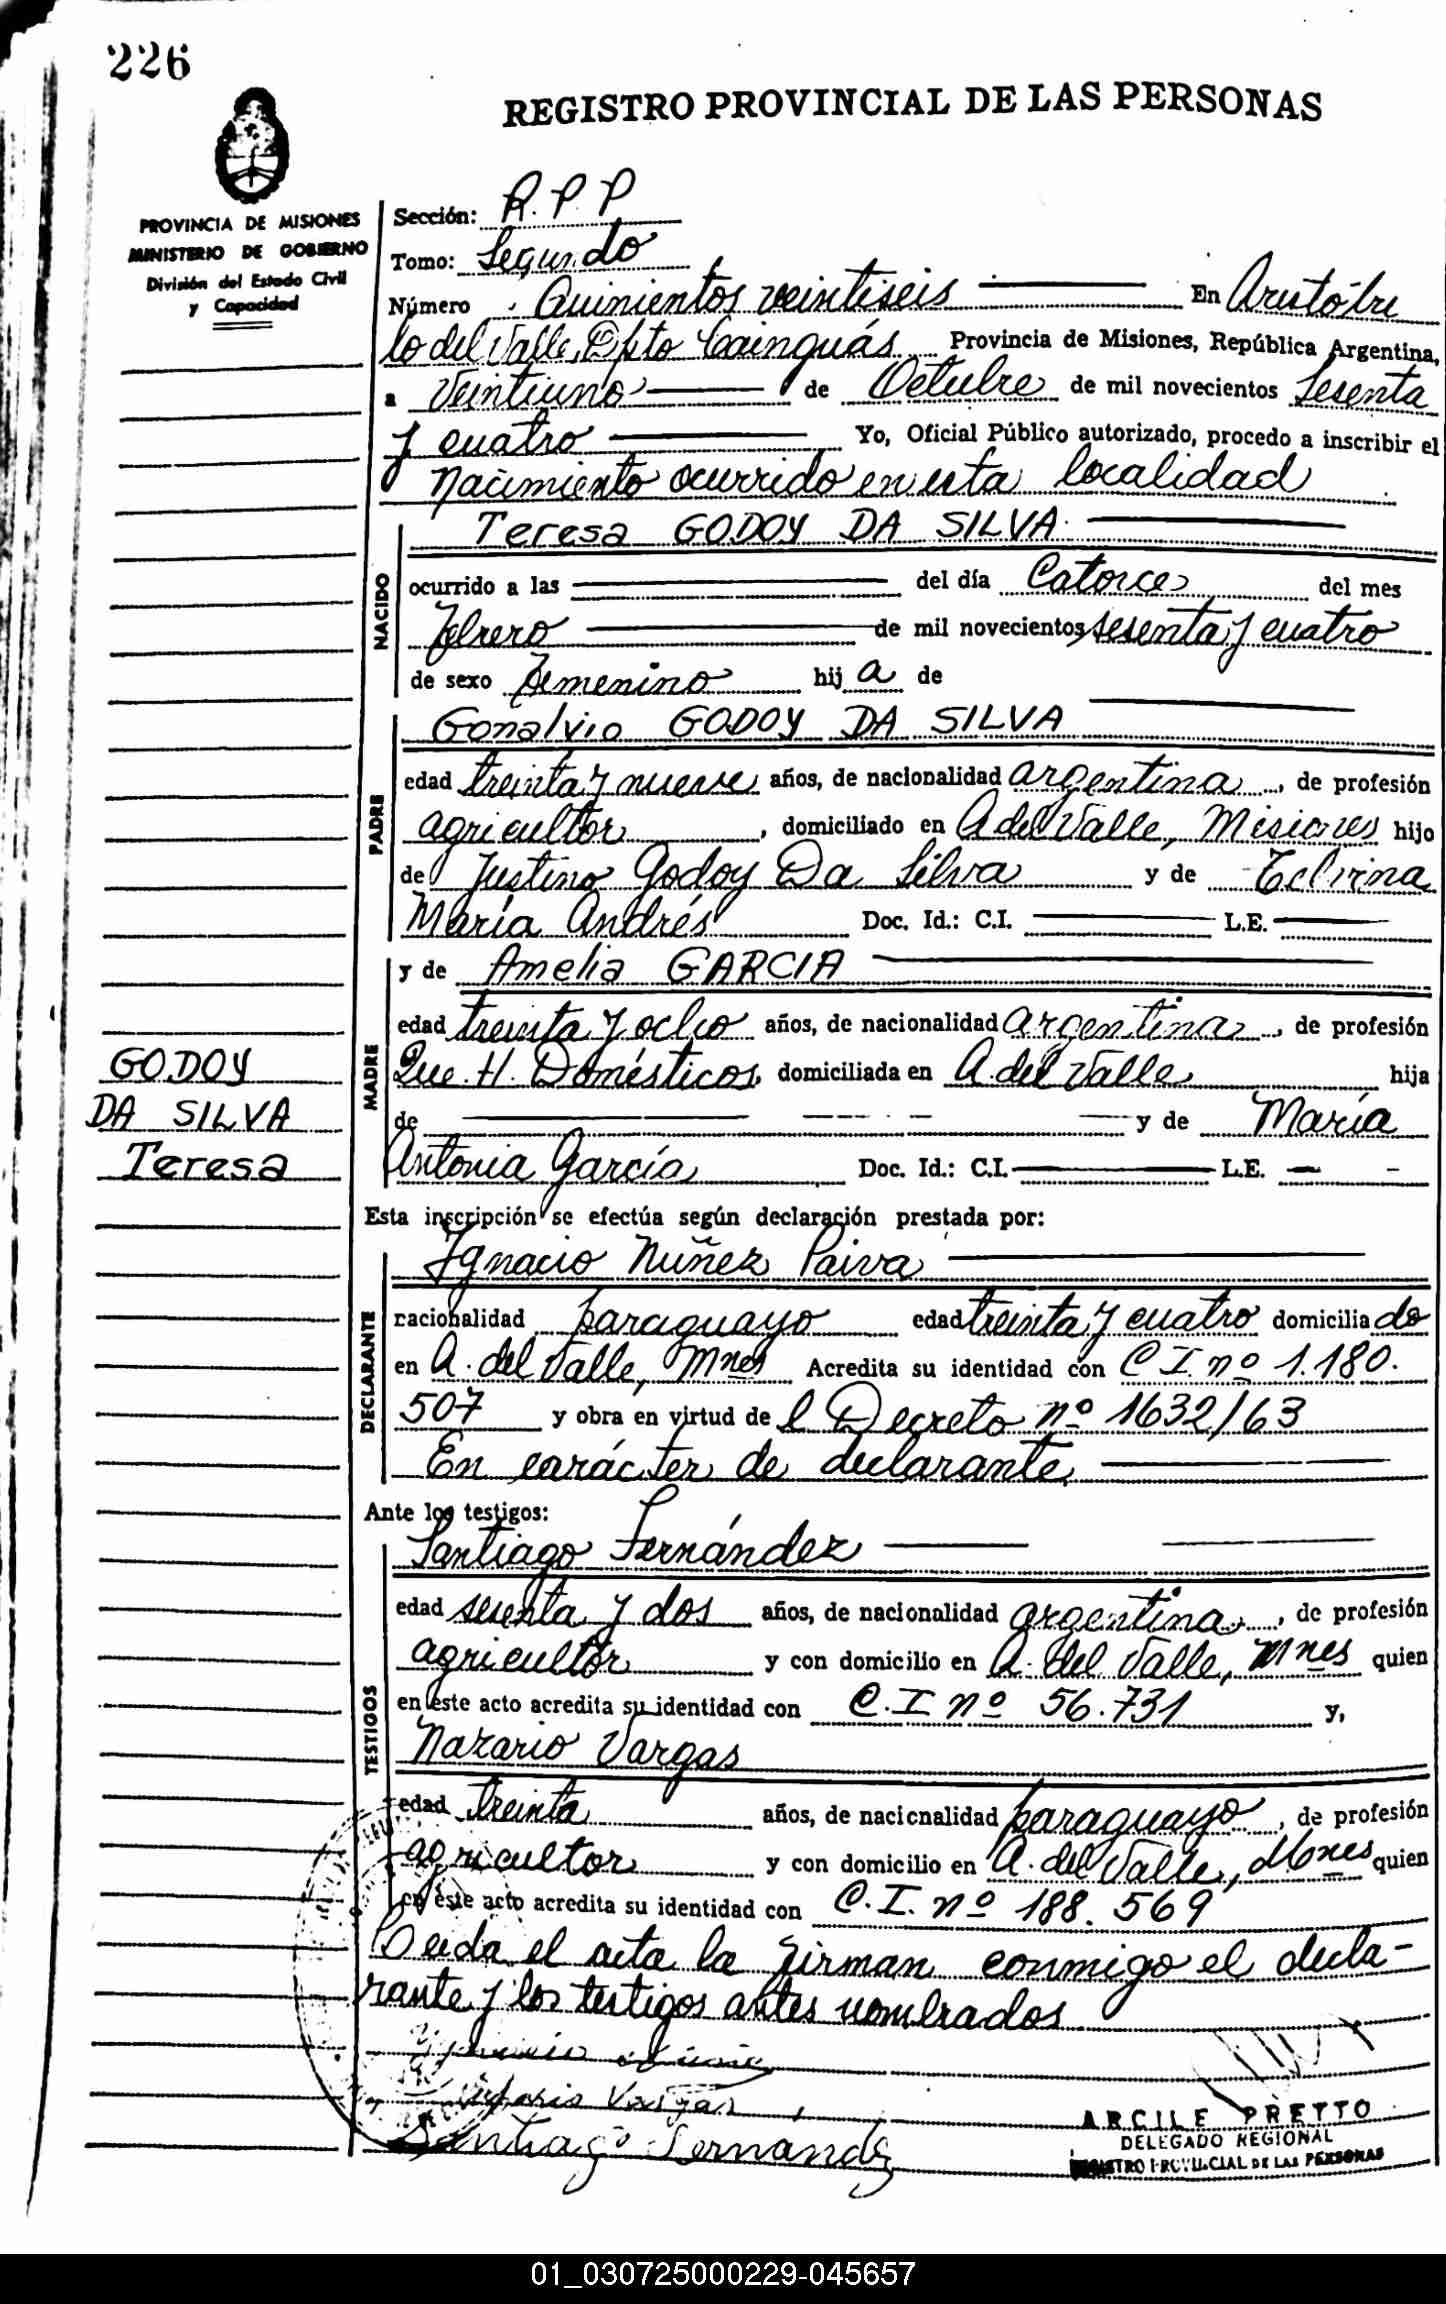 226
REGISTRO PROVINCIAL DE LAS PERSONAS
PROVINCIA DE MISIONES
MINISTERIO DE GOBIERNO
División del Estado Civil
y Capacidad
Sección: R.P.P
Tomo: Segundo
Número Quinientos veintiseis En Aristóbu
lo del Valle, Dpto Cainguás Provincia de Misiones, República Argentina,
a Veintiuno de Octubre de mil novecientos sesenta
y cuatro Yo, Oficial Público autorizado, procedo a inscribir el
Nacimiento ocurrido en esta localidad
NACIDO
Teresa GODOY DA SILVA
ocurrido a las del día Catorce del mes
Febrero de mil novecientos sesenta y cuatro
de sexo femenino hij a de
PADRE
Gonalvio GODOY DA SILVA
edad treinta y nueve años, de nacionalidad argentina, de profesión
agricultor, domiciliado en A del Valle, Misiones hijo
de Justino Godoy Da Silva y de
María Andrés Doc. Id.: C.I. L.E.
MADRE
y de Amelia GARCIA
edad treinta y ocho años, de nacionalidad argentina, de profesión
Que. H. Domésticos, domiciliada en A. del Valle hija
de y de María
Antonia García Doc. Id.: C.I. L.E.
GODOY
DA SILVA
Teresa
Esta inscripción se efectúa según declaración prestada por:
DECLARANTE
Ignacio Núñez Paiva
nacionalidad paraguayo edad treinta y cuatro domicilia do
en A. del Valle, Mnes Acredita su identidad con C I. nº 1.180.
507 y obra en virtud de l Decreto nº 1632/63
En carácter de declarante,
Ante los testigos:
TESTIGOS
Santiago Fernández
edad sesenta y dos años, de nacionalidad argentina, de profesión
agricultor y con domicilio en A. del Valle, Mnes quien
en este acto acredita su identidad con C.I nº 56.731 y,
Nazario Vargas
edad treinta años, de nacionalidad paraguayo, de profesión
agricultor y con domicilio en A. del Valle, Mnes quien
en este acto acredita su identidad con C.I. nº 188.569
Leida el acta la firman conmigo el decla-
rante y los testigos antes nombrados
Vargas
Santiago Fernandez
ARCILE PRETTO
DELEGADO REGIONAL
REGISTRO PROVINCIAL DE LAS PERSONAS
01_030725000229-045657